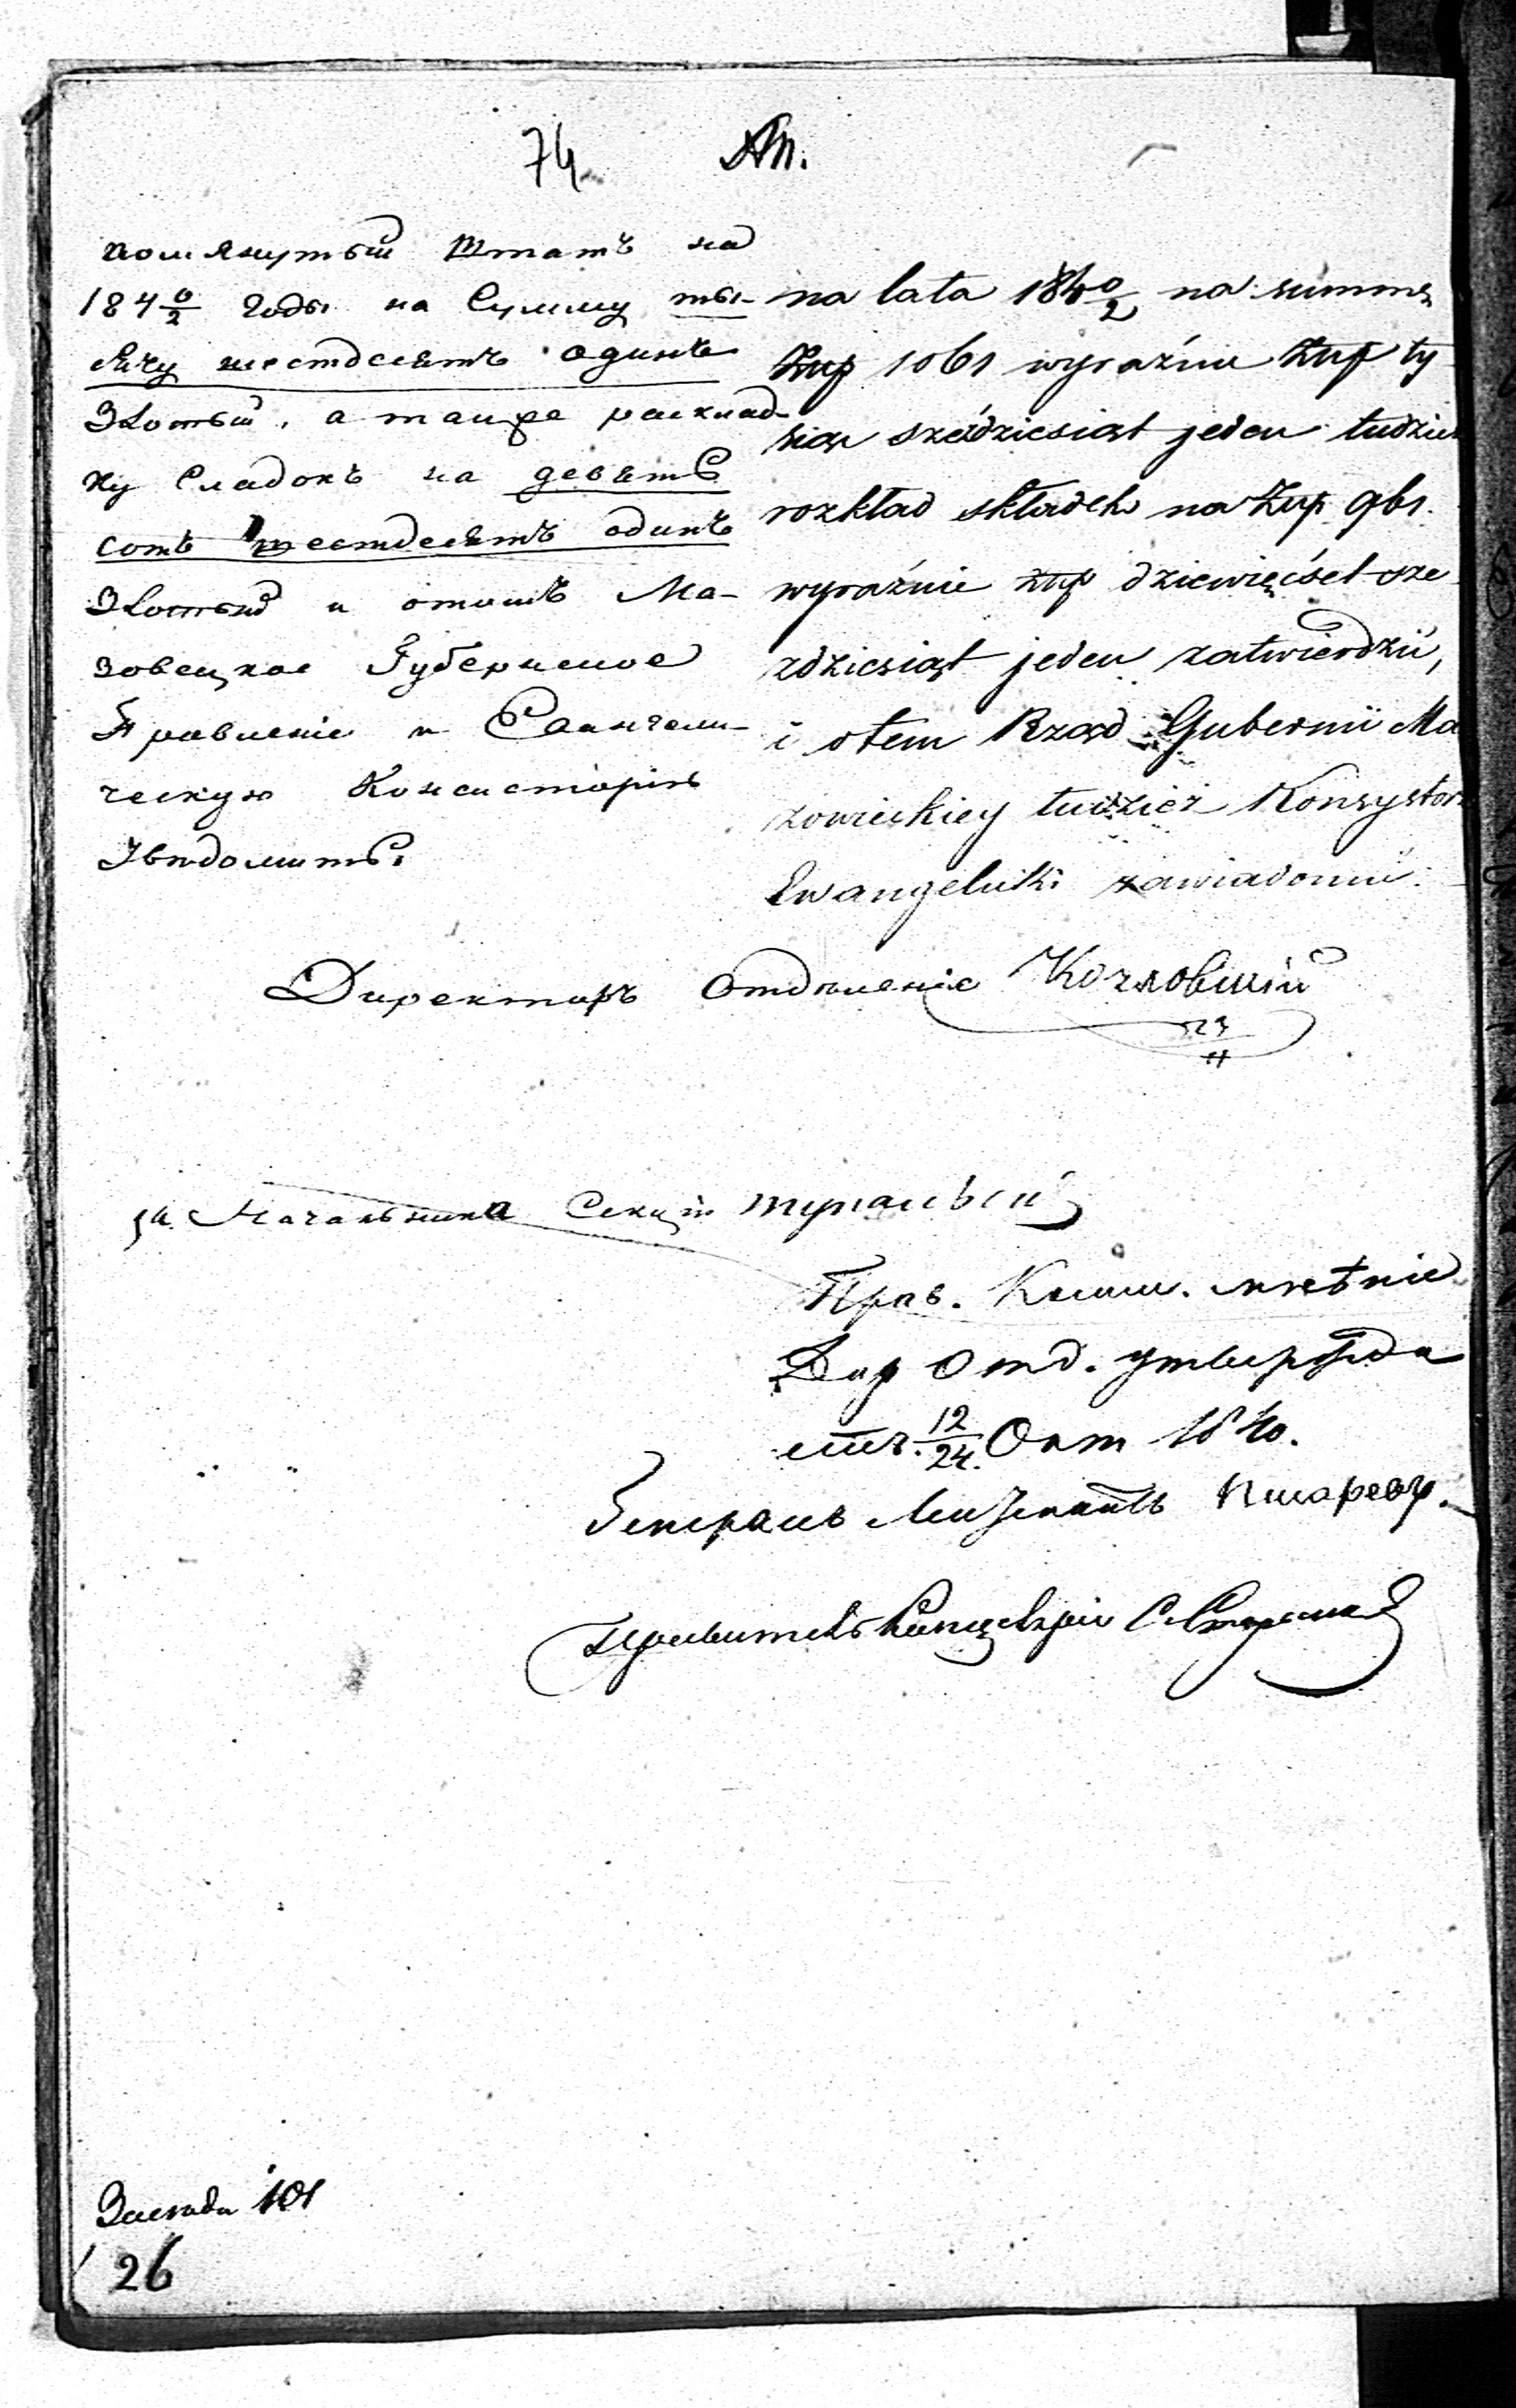 74
помянутый Штатъ на
184 0/2 годы на Сумму ты-
сячу шестдесятъ одинъ
Злотый, а также расклад-
ку Складокъ на девять
сотъ шестдесятъ одинъ
Злотый и отомъ Ма-
зовецкое Губернское
Правленіе и Евангели-
ческую Консисторію
Увѣдомить.
na lata 184 0/2 na summę
Złtp 1061 wyraźnie Złtp ty-
siąc sześdziesiąt jeden tudzież
rozkład składek na Złtp 961.
wyraźnie złtp dziewięćset sze-
zdziesiąt jeden zatwierdzić,
i otem Rząd Gubernii Ma
zowieckiey tudzież Konsystorz
Ewangelicki zawiadomić.
Директоръ Отдѣленія Козловскій
За Начальника Секціи
Прав. Комм. мнѣніе
Дир Отд. утвержда
етъ. 12/24. Окт 1840.
Генералъ Лейтенантъ Писаревъ.
Правитель Канцеляріи
101
26